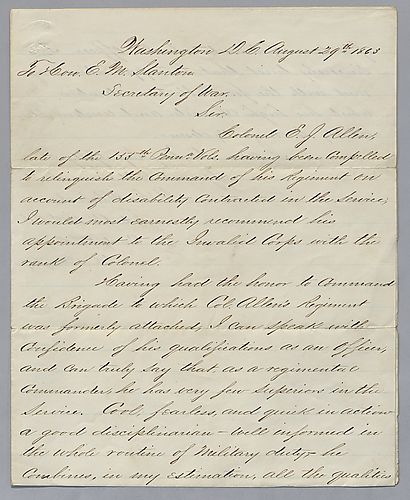 Washington D.C. August 29th 1863
To Hon. E. M. Stanton
Secretary of War.
Sir.
Colonel E. J. Allen,
late of the 155th Penna Vols. having been compelled
to relinquish the command of his Regiment on
account of disability contracted in the service,
I would most earnestly recommend his
appointment to the Invalid Corps with the
rank of Colonel.
Having had the honor to command
the Brigade to which Col. Allen's Regiment
was formerly attached, I can speak with
confidence of his qualifications as an officer,
and can truly say that as a regimental
commander, he has very few superiors in the
service. Cool, fearless, and quick in action
a good disciplinarian - well informed in
the whole routine of Military duty - he
combines, in my estimation, all the qualities